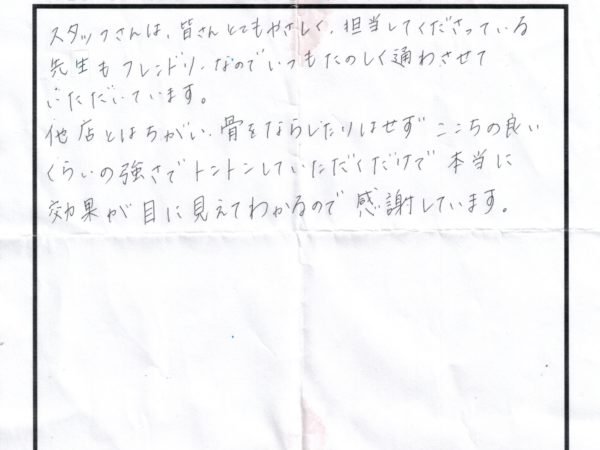 スタッフさんは、皆さんとてもやさしく、担当してくださっている
先生もフレンドリーなのでいつもたのしく通わさせて
いただいています。
他店とはちがい、骨をならしたりはせず ここちの良い
くらいの強さでトントンしていただくだけで 本当に
効果が目に見えてわかるので 感謝しています。